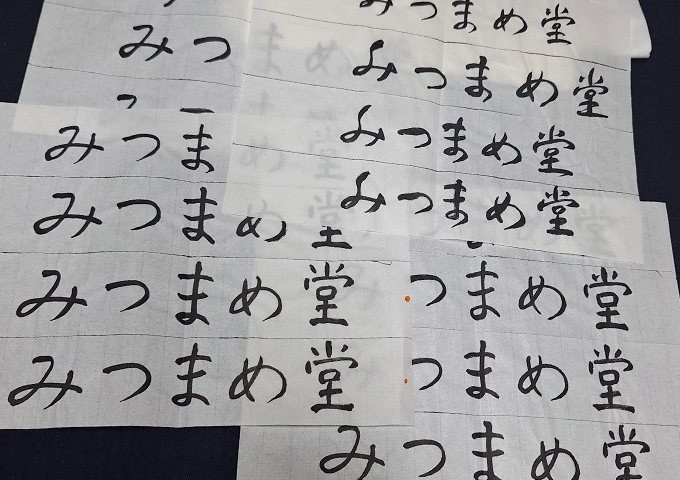 みつまめ堂
みつまめ堂
みつまめ堂
みつまめ堂
みつ
みつま
みつまめ堂
みつまめ堂
みつまめ堂
つまめ堂
つまめ堂
みつまめ堂